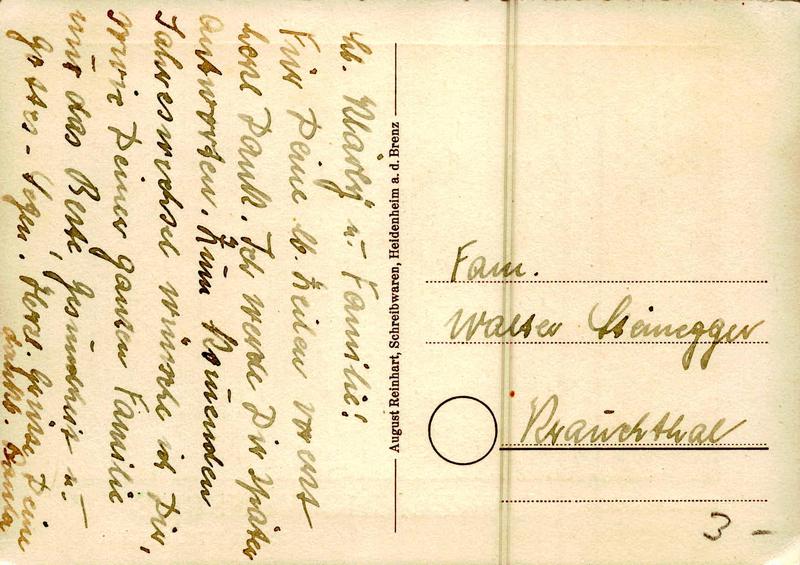 lb. Klärÿ u. Familie!
Für Deine lb. Zeilen vorerst
herzl. Dank. Ich werde Dir später
antworten. Zum kommenden
Jahreswechsel wünsche ich Dir,
sowie Deiner ganzen Familie
nur das Beste, Gesundheit u.
Gottes-Segen. Herzl. Grüße Dein
dankb.
August Reinhart, Schreibwaren, Heidenheim a. d. Brenz
Fam.
Walter Steinegger
Krauchthal
3 -